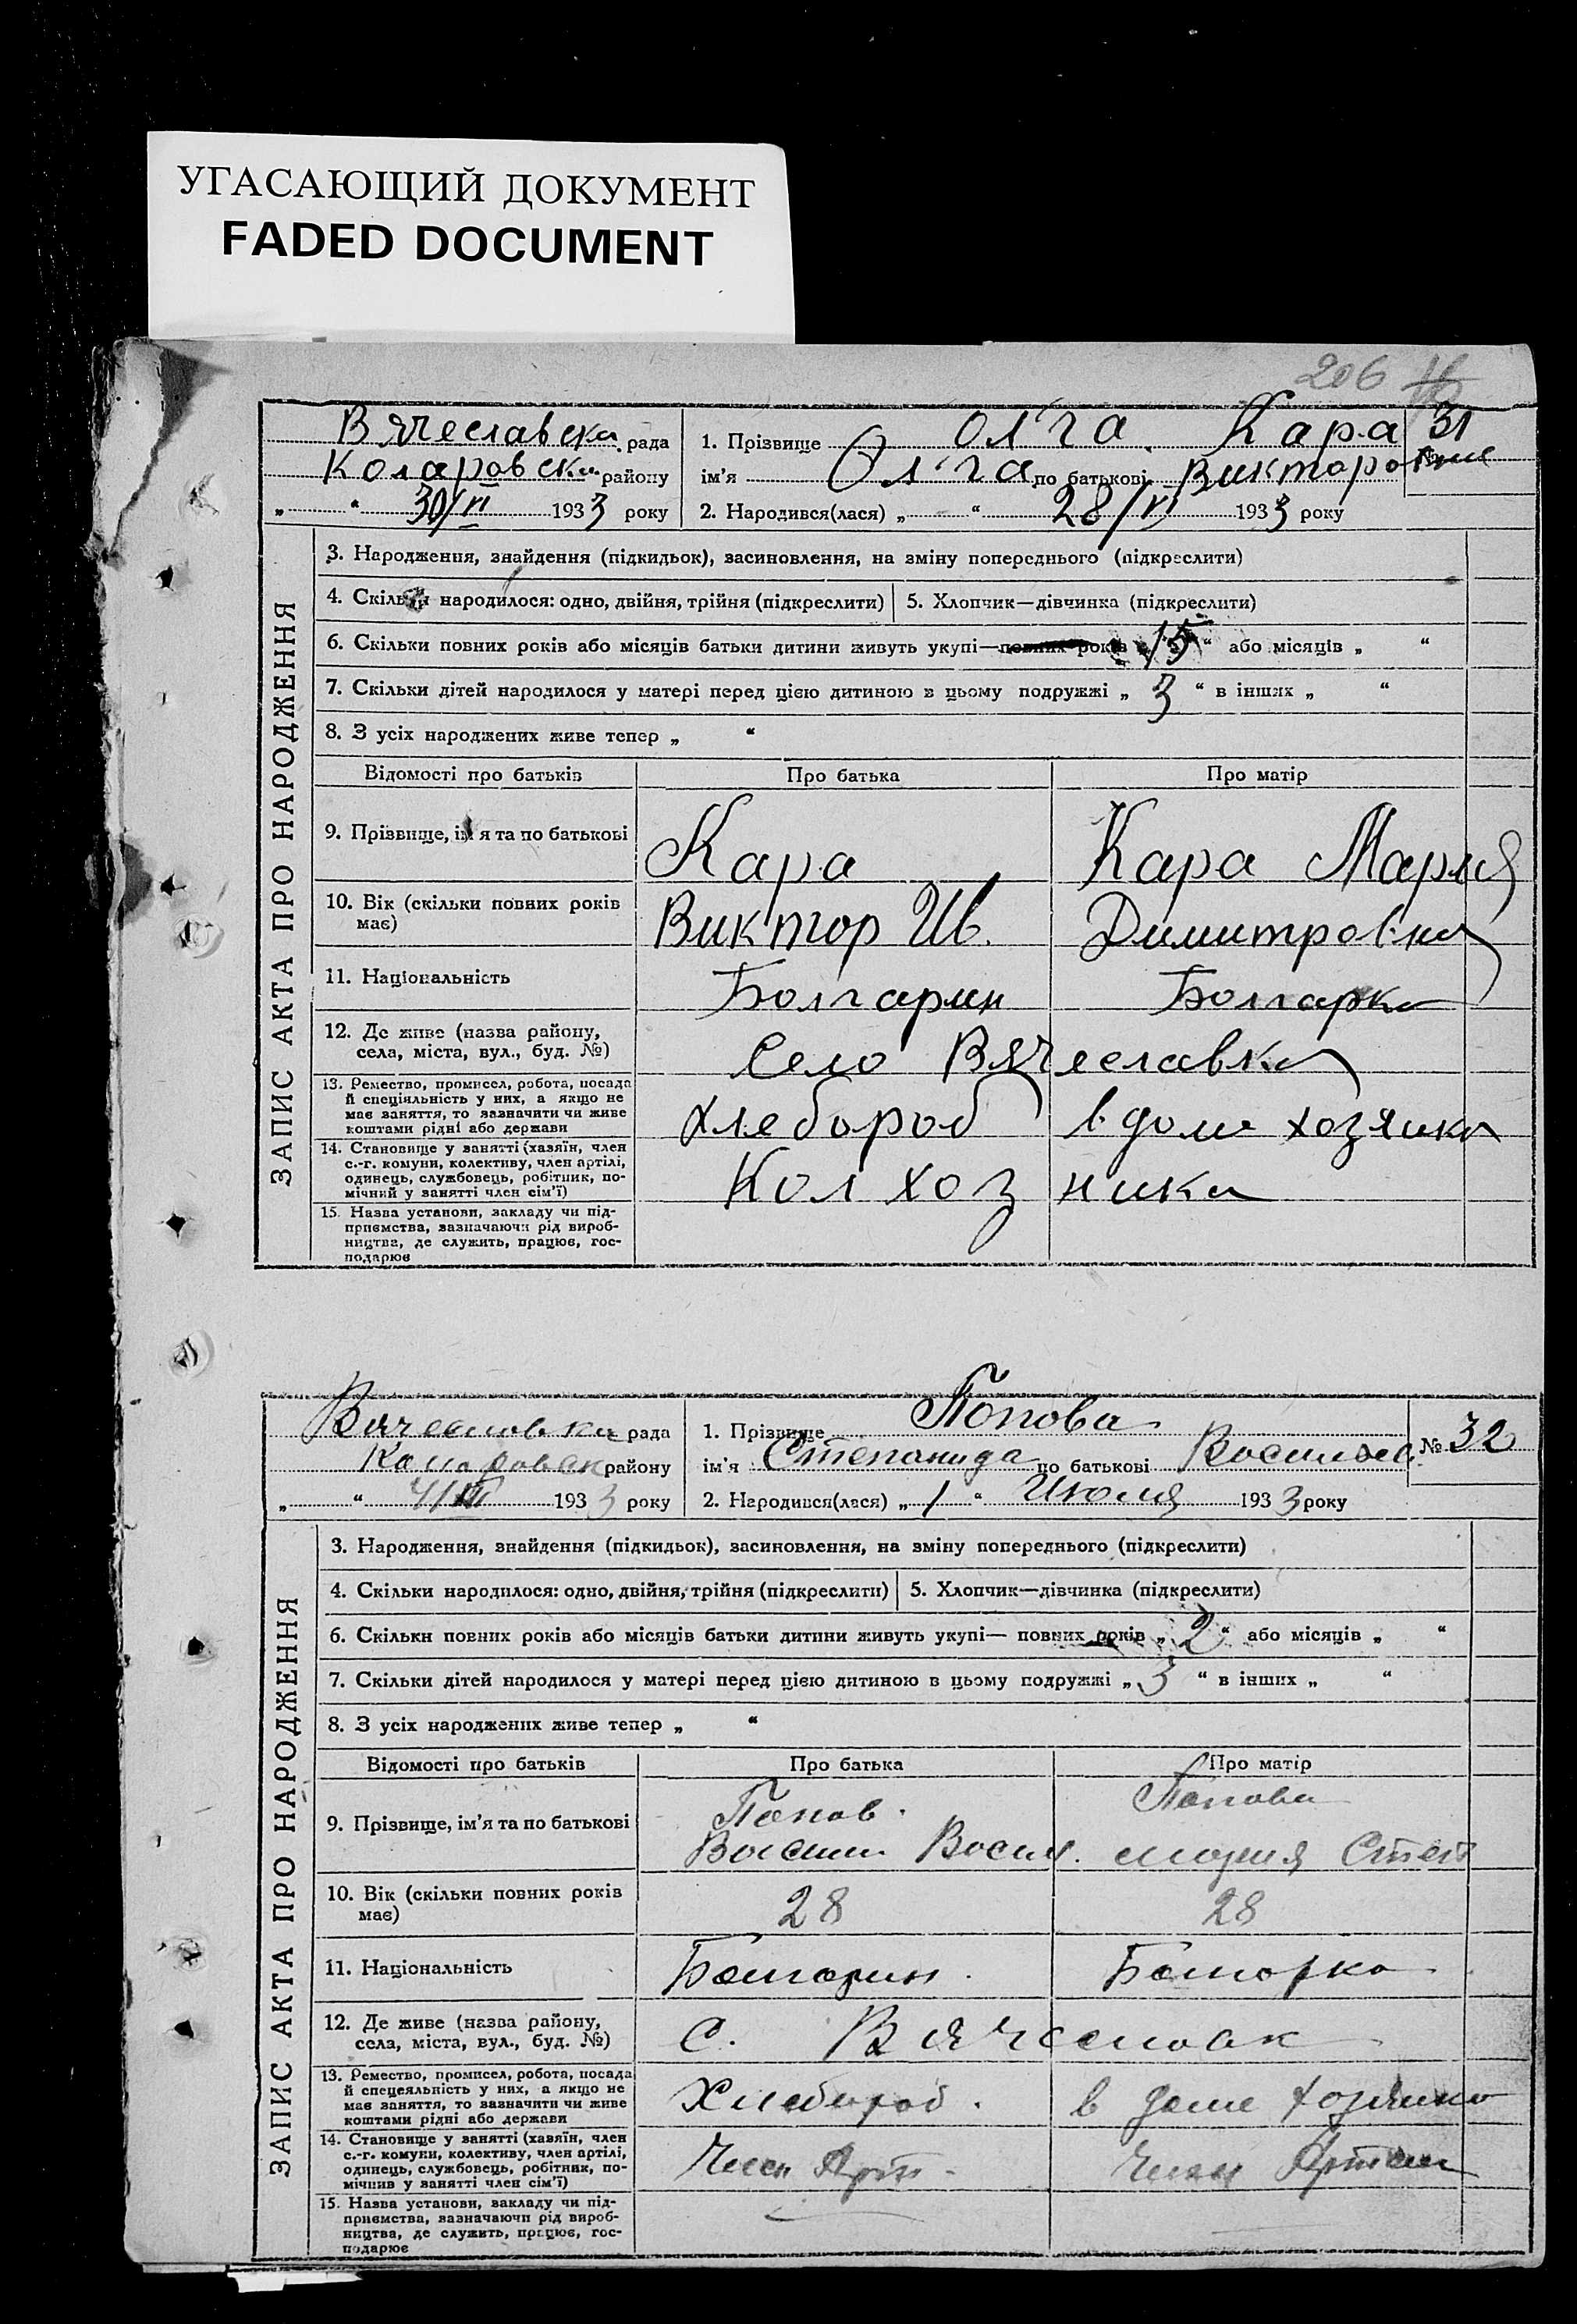 УГАСАЮЩИЙ ДОКУМЕНТ
FADED DOCUMENT
206
Вячеславска рада
Коларовска району
„ “ 30/VI 1933 року
1. Прізвище Олґа Кара
ім'я Олґа по батькові Викторовне
№ 31
2. Народився(лася) „ “ 28/VI 1933 року
ЗАПИС АКТА ПРО НАРОДЖЕННЯ
3. Народження, знайдення (підкидьок), засиновлення, на зміну попереднього (підкреслити)
4. Скільки народилося: одно, двійня, трійня (підкреслити) 5. Хлопчик—дівчинка (підкреслити)
6. Скільки повних років або місяців батьки дитини живуть укупі—повних років „ 15 “ або місяців „ “
7. Скільки дітей народилося у матері перед цією дитиною в цьому подружжі „ 3 “ в інших „ “
8. З усіх народжених живе тепер „ “
Відомості про батьків Про батька Про матір
9. Прізвище, ім'я та по батькові Кара Кара Мария
10. Вік (скільки повних років має) Виктор Ив. Димитровна
11. Національність Болгарин Болгарка
12. Де живе (назва району, села, міста, вул., буд. №) Село Вячеславка
13. Ремество, промисел, робота, посада й спеціяльність у них, а якщо не має заняття, то зазначити чи живе коштами рідні або держави Хлебороб в доме хозяика
14. Становище у занятті (хазяїн, член с.-г. комуни, колективу, член артілі, одинець, службовець, робітник, помічний у занятті член сім'ї) Колхозника
15. Назва установи, закладу чи підприємства, зазначаючи рід виробництва, де служить, працює, господарює
Вячеславка рада
Коларовск району
„ “ 1933 року
1. Прізвище Попова
ім'я Степанида по батькові Васильев.
№ 32
2. Народився(лася) „ 1 “ Июля 1933 року
ЗАПИС АКТА ПРО НАРОДЖЕННЯ
3. Народження, знайдення (підкидьок), засиновлення, на зміну попереднього (підкреслити)
4. Скільки народилося: одно, двійня, трійня (підкреслити) 5. Хлопчик—дівчинка (підкреслити)
6. Скільки повних років або місяців батьки дитини живуть укупі— повних років „ 2 “ або місяців „ “
7. Скільки дітей народилося у матері перед цією дитиною в цьому подружжі „ 3 “ в інших „ “
8. З усіх народжених живе тепер „ “
Відомості про батьків Про батька Про матір
9. Прізвище, ім'я та по батькові Попов. Попова
Васили Васил. мария Степ
10. Вік (скільки повних років має) 28 28
11. Національність Болгарин. Болгарка
12. Де живе (назва району, села, міста, вул., буд. №) С. Вячеславк
13. Ремество, промисел, робота, посада й спецеяльність у них, а якщо не має заняття, то зазначити чи живе коштами рідні або держави Хлебороб. в доме хозяика
14. Становище у занятті (хазяїн, член с.-г. комуни, колективу, член артілі, одинець, службовець, робітник, помічнив у занятті член сім'ї) Член Арт. Член Артели
15. Назва установи, закладу чи підприємства, зазначаючи рід виробництва, де служить, працює, господарює